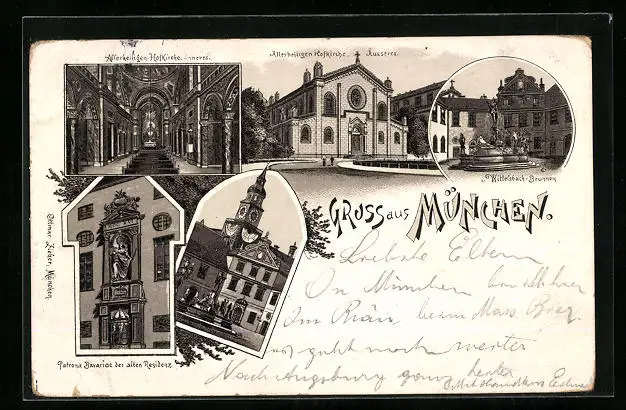 Allerheiligen-Hofkirche, Inneres.
Allerheiligen Hofkirche, Äusseres.
Wittelsbach-Brunnen
Gruss aus München.
Ottmar Zieher, München
Patrona Bavariae der alten Residenz
Liebste Eltern
In München
Im beim Mass Bier
geht noch weiter
Nach Augsburg ganz heiter